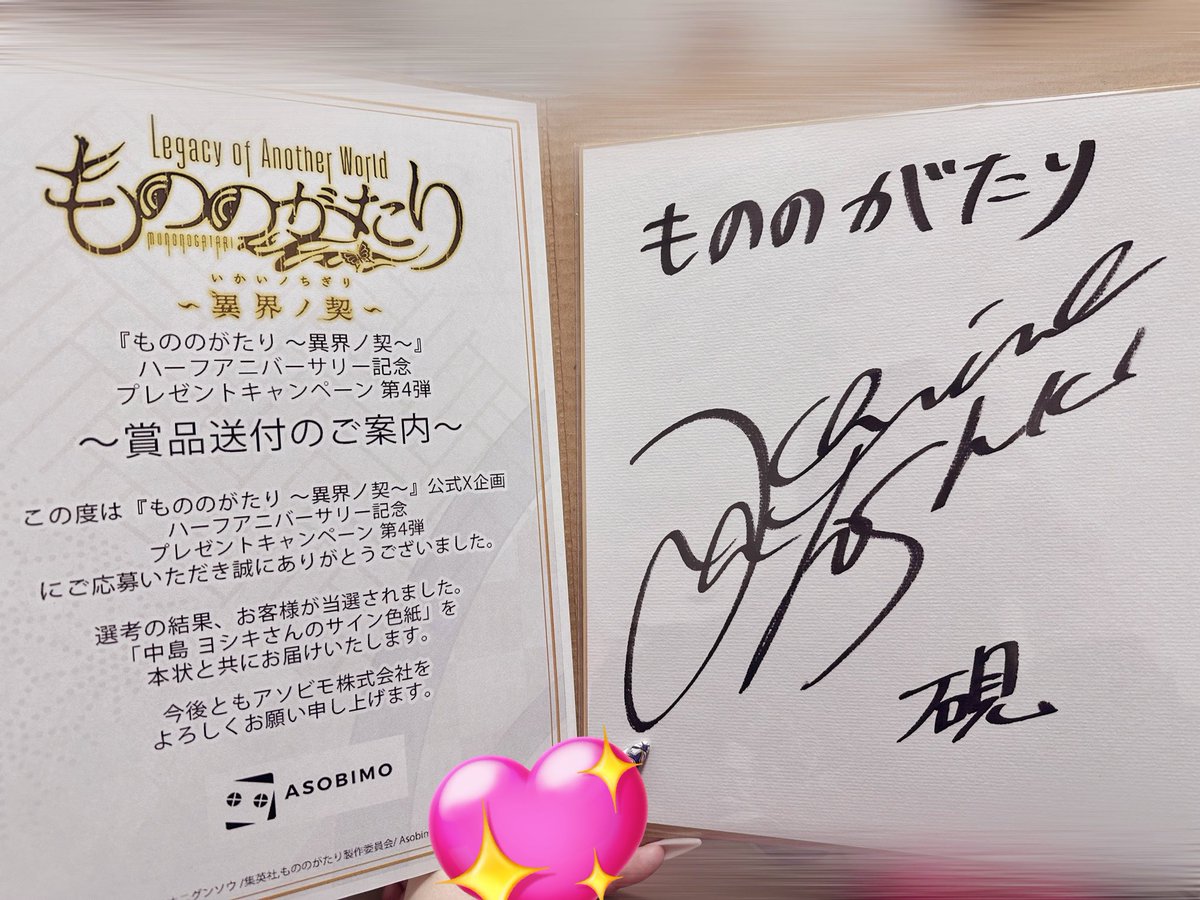 Legacy of Another World
もののがたり
MONONOGATARI
いかいノちぎり
～異界ノ契～
『もののがたり ～異界ノ契～』
ハーフアニバーサリー記念
プレゼントキャンペーン 第4弾
～賞品送付のご案内～
この度は『もののがたり ～異界ノ契～』公式X企画
ハーフアニバーサリー記念
プレゼントキャンペーン 第4弾
にご応募いただき誠にありがとうございました。
選考の結果、お客様が当選されました。
「中島 ヨシキさんのサイン色紙」を
本状と共にお届けいたします。
今後ともアソビモ株式会社を
よろしくお願い申し上げます。
ASOBIMO
グンソウ/集英社,もののがたり製作委員会/ Asobim
もののがたり
硯